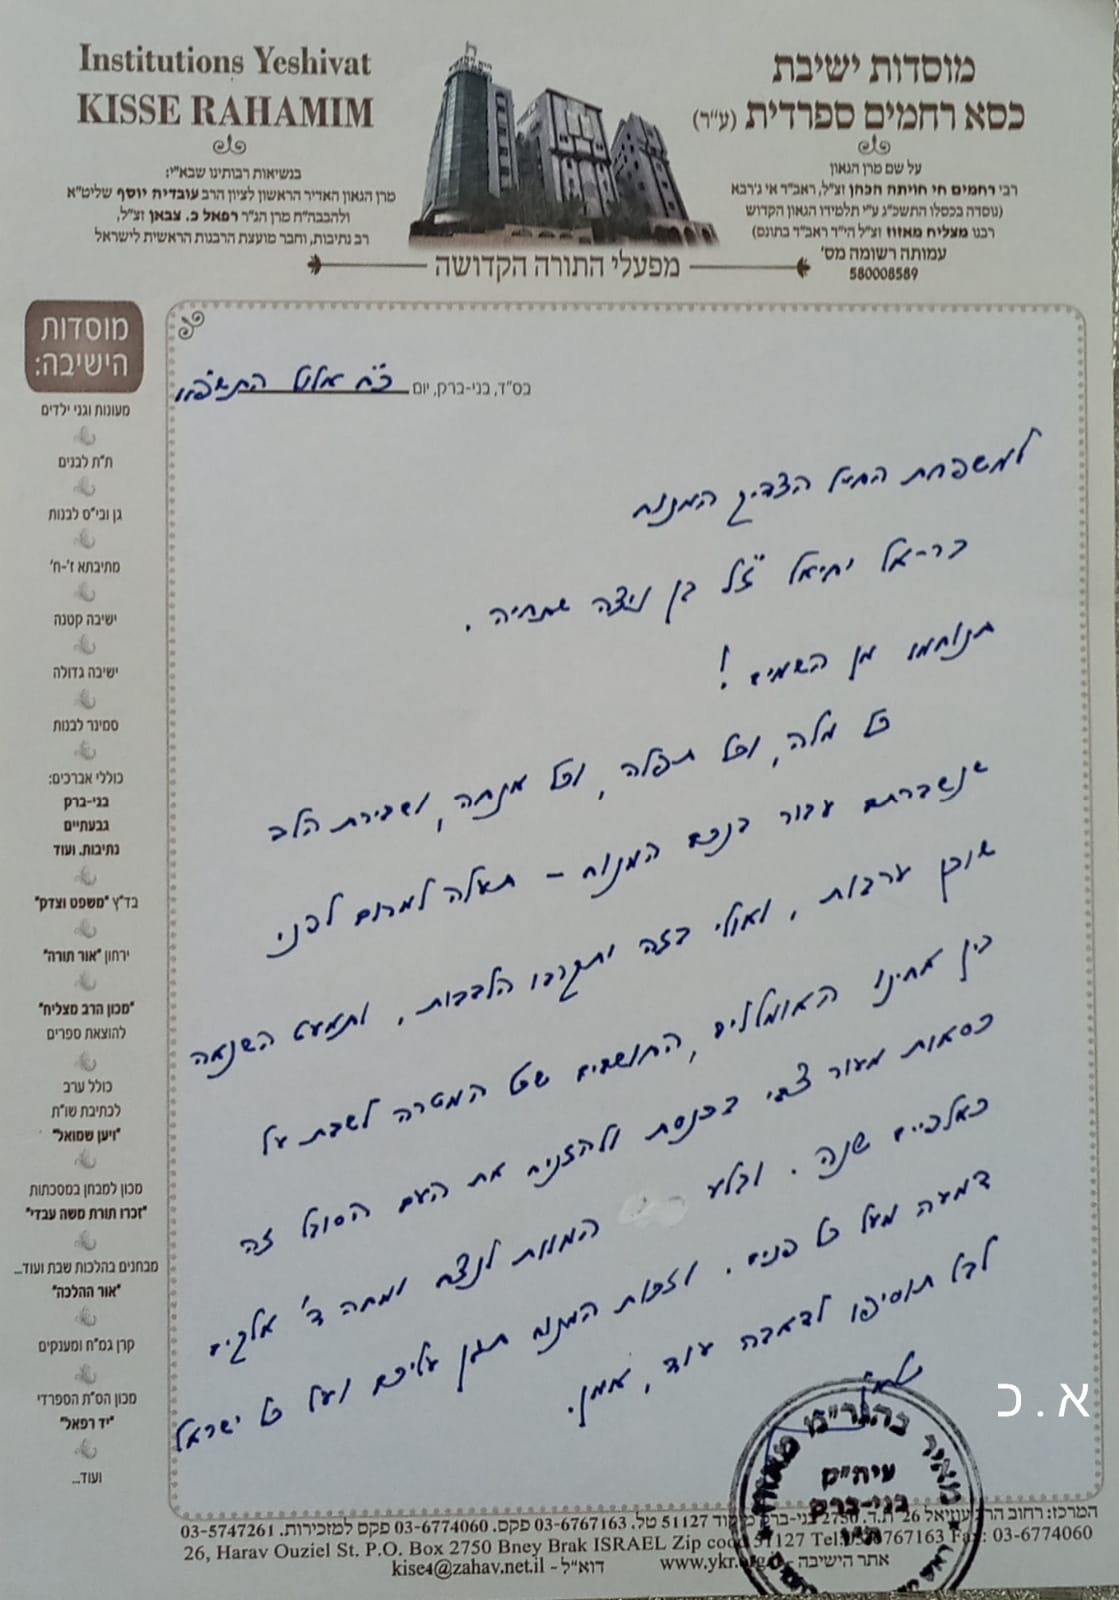 Institutions Yeshivat
KISSE RAHAMIM
בנשיאות רבותינו שבא"י:
מרן הגאון האדיר הראשון לציון הרב עובדיה יוסף שליט"א
ולהבבה"ח מרן הג"ר רפאל כ. צבאן זצ"ל,
רב נתיבות, וחבר מועצת הרבנות הראשית לישראל
מוסדות ישיבת
כסא רחמים ספרדית (ע"ר)
על שם מרן הגאון
רבי רחמים חי חויתה הכהן זצ"ל, ראב"ד אי ג'רבא
(נוסדה בכסלו התשכ"ג ע"י תלמידו הגאון הקדוש
רבנו מצליח מאזוז זצ"ל הי"ד ראב"ד בתונס)
עמותה רשומה מס'
580008589
מפעלי התורה הקדושה
מוסדות
הישיבה:
מעונות וגני ילדים
ת"ת לבנים
גן ובי"ס לבנות
מתיבתא ז'-ח'
ישיבה קטנה
ישיבה גדולה
סמינר לבנות
כוללי אברכים:
בני-ברק
גבעתיים
נתיבות. ועוד
בד"ץ "משפט וצדק"
ירחון "אור תורה"
"מכון הרב מצליח"
להוצאת ספרים
כולל ערב
לכתיבת שו"ת
"ויען שמואל"
מכון למבחן במסכתות
"זכרו תורת משה עבדי"
מבחנים בהלכות שבת ועוד...
"אור ההלכה"
קרן גמ"ח ומענקים
מכון הס"ת הספרדי
"יד רפאל"
ועוד...
בס"ד, בני-ברק, יום כ"ח אלול התשפ"א
למשפחת החייל הצדיק המנוח
בר-אל יחיאל ז"ל בן ניצה שתחיה.
תנוחמו מן השמים!
כל מלה, וכל תפלה, וכל מנחה, ושבירת הלב
שנשברתם עבור בנכם המנוח - תעלה למרום לפני
שוכן ערבות, ואולי בזה יתקרבו הלבבות, ותמעט השנאה
בין אחינו האומללים, החושבים שכל המטרה לשבת על
כסאות מעור צבי בכנסת ולהזניח את העם הסובל זה
כאלפיים שנה. ובלע המוות לנצח ומחה ד' אלקים
דמעה מעל כל פנים. וזכות המנוח תגן עליכם ועל כל ישראל
לבל תוסיפו לדאבה עוד, אמן.
מאיר בהגר"מ מאזוז
עיה"ק
בני-ברק
ת"ו
א.כ
המרכז: רחוב הרב עוזיאל 26 ת.ד. 2750 בני-ברק מיקוד 51127 טל. 03-6767163 פקס. 03-6774060 פקס למזכירות. 03-5747261
26, Harav Ouziel St. P.O. Box 2750 Bney Brak ISRAEL Zip cood 51127 Fax: 03-6774060
אתר הישיבה - דוא"ל - kise4@zahav.net.il